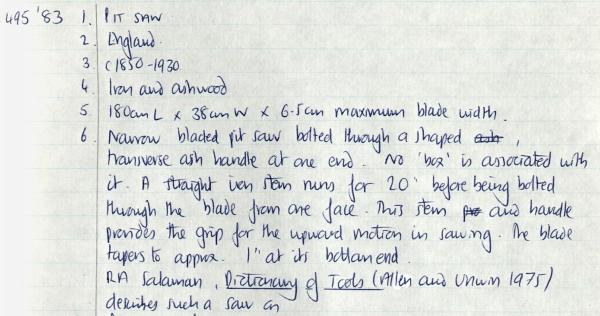 495 '83 1. PIT SAW
2. England.
3. c1850-1930
4. Iron and ashwood
5 180cm L x 38cm W x 6.5cm maximum blade width.
6. Narrow bladed pit saw bolted through a shaped ash,
transverse ash handle at one end. No 'box' is associated with
it. A straight iron stem runs for 20" before being bolted
through the blade from one face. This stem and handle
provides the grip for the upward motion in sawing. The blade
tapers to approx. 1" at its bottom end.
RA Salaman, Dictionary of Tools (Allen and Unwin 1975)
describes such a saw on